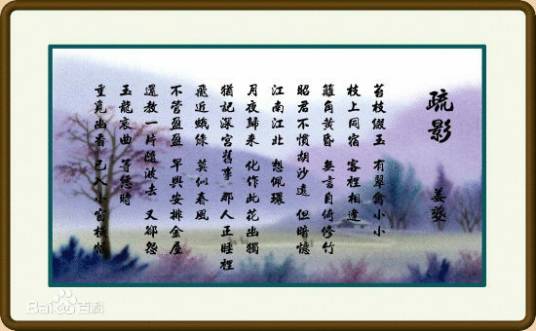 疏影
姜夔
苔枝綴玉 有翠禽小小
枝上同宿 客裡相逢
籬角黃昏 無言自倚修竹
昭君不慣胡沙遠 但暗憶
江南江北 想佩環
月夜歸來 化作此花幽獨
猶記深宮舊事 那人正睡裡
飛近蛾綠 莫似春風
不管盈盈 早與安排金屋
還教一片隨波去 又卻怨
玉龍哀曲 等恁時
重覓幽香 已入小窗橫幅
Bai百科